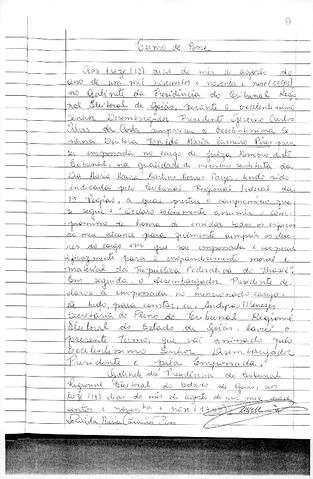 9
Termo de Posse
Aos treze (13) dias do mês de agosto do
ano de um mil novecentos e noventa e nove (1999)
no Gabinete da Presidência do Tribunal Regio
nal Eleitoral de Goiás, perante o Excelentíssimo
Senhor Desembargador Presidente Carlos
da Costa compareceu a Excelentíssima Se
nhora Doutora Maria Carneiro Pires para
ser empossada no cargo de Juíza Membro deste
Tribunal, na qualidade de membro substituta da
Dra Maria Martins Moraes tendo sido
indicada pelo Tribunal Regional Federal da
1ª Região, a qual prestou o compromisso que
se segue: "Declaro solenemente assumir o com
promisso de honra de envidar todos os esforços
ao meu alcance para fielmente cumprir os deve
res do cargo em que sou empossada e cooperar
eficazmente para o engrandecimento moral e
material da República Federativa do Brasil".
Em seguida, o desembargador Presidente de
clarou a empossada no mencionado cargo.
De tudo, para constar, eu Menezes
Secretária do Pleno do Tribunal Regional
Eleitoral do Estado de Goiás, lavrei o
presente Termo, que vai assinado pelo
Excelentíssimo Senhor Desembargador
Presidente e pela Empossada.
Gabinete da Presidência do Tribunal
Regional Eleitoral do Estado de Goiás, aos
treze (13) dias do mês de agosto de um mil nove
centos e noventa e nove (1999)
Maria Carneiro Pires